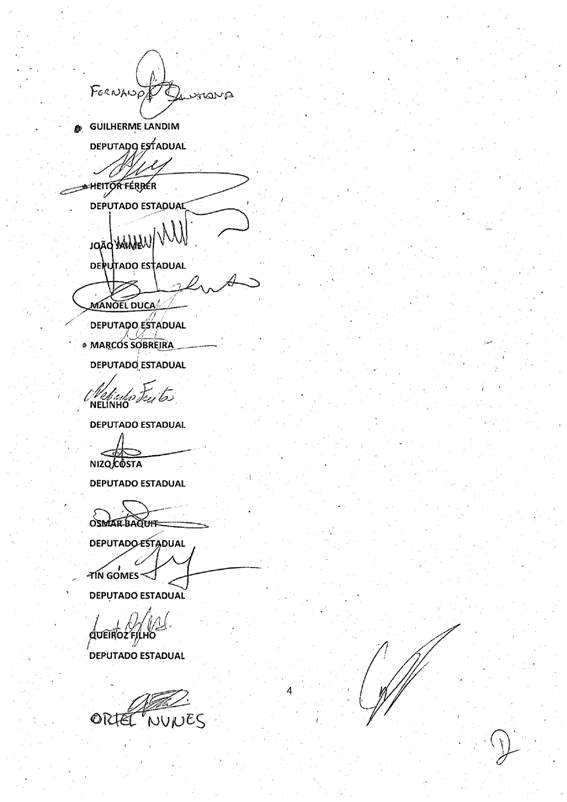 FERNANDO SANTANA
GUILHERME LANDIM
DEPUTADO ESTADUAL
HEITOR FÉRRER
DEPUTADO ESTADUAL
JOÃO JAIME
DEPUTADO ESTADUAL
MANOEL DUCA
DEPUTADO ESTADUAL
MARCOS SOBREIRA
DEPUTADO ESTADUAL
Nelinho Freitas
NELINHO
DEPUTADO ESTADUAL
NIZO COSTA
DEPUTADO ESTADUAL
OSMAR BAQUIT
DEPUTADO ESTADUAL
TIN GOMES
DEPUTADO ESTADUAL
QUEIROZ FILHO
DEPUTADO ESTADUAL
4
ORIEL NUNES